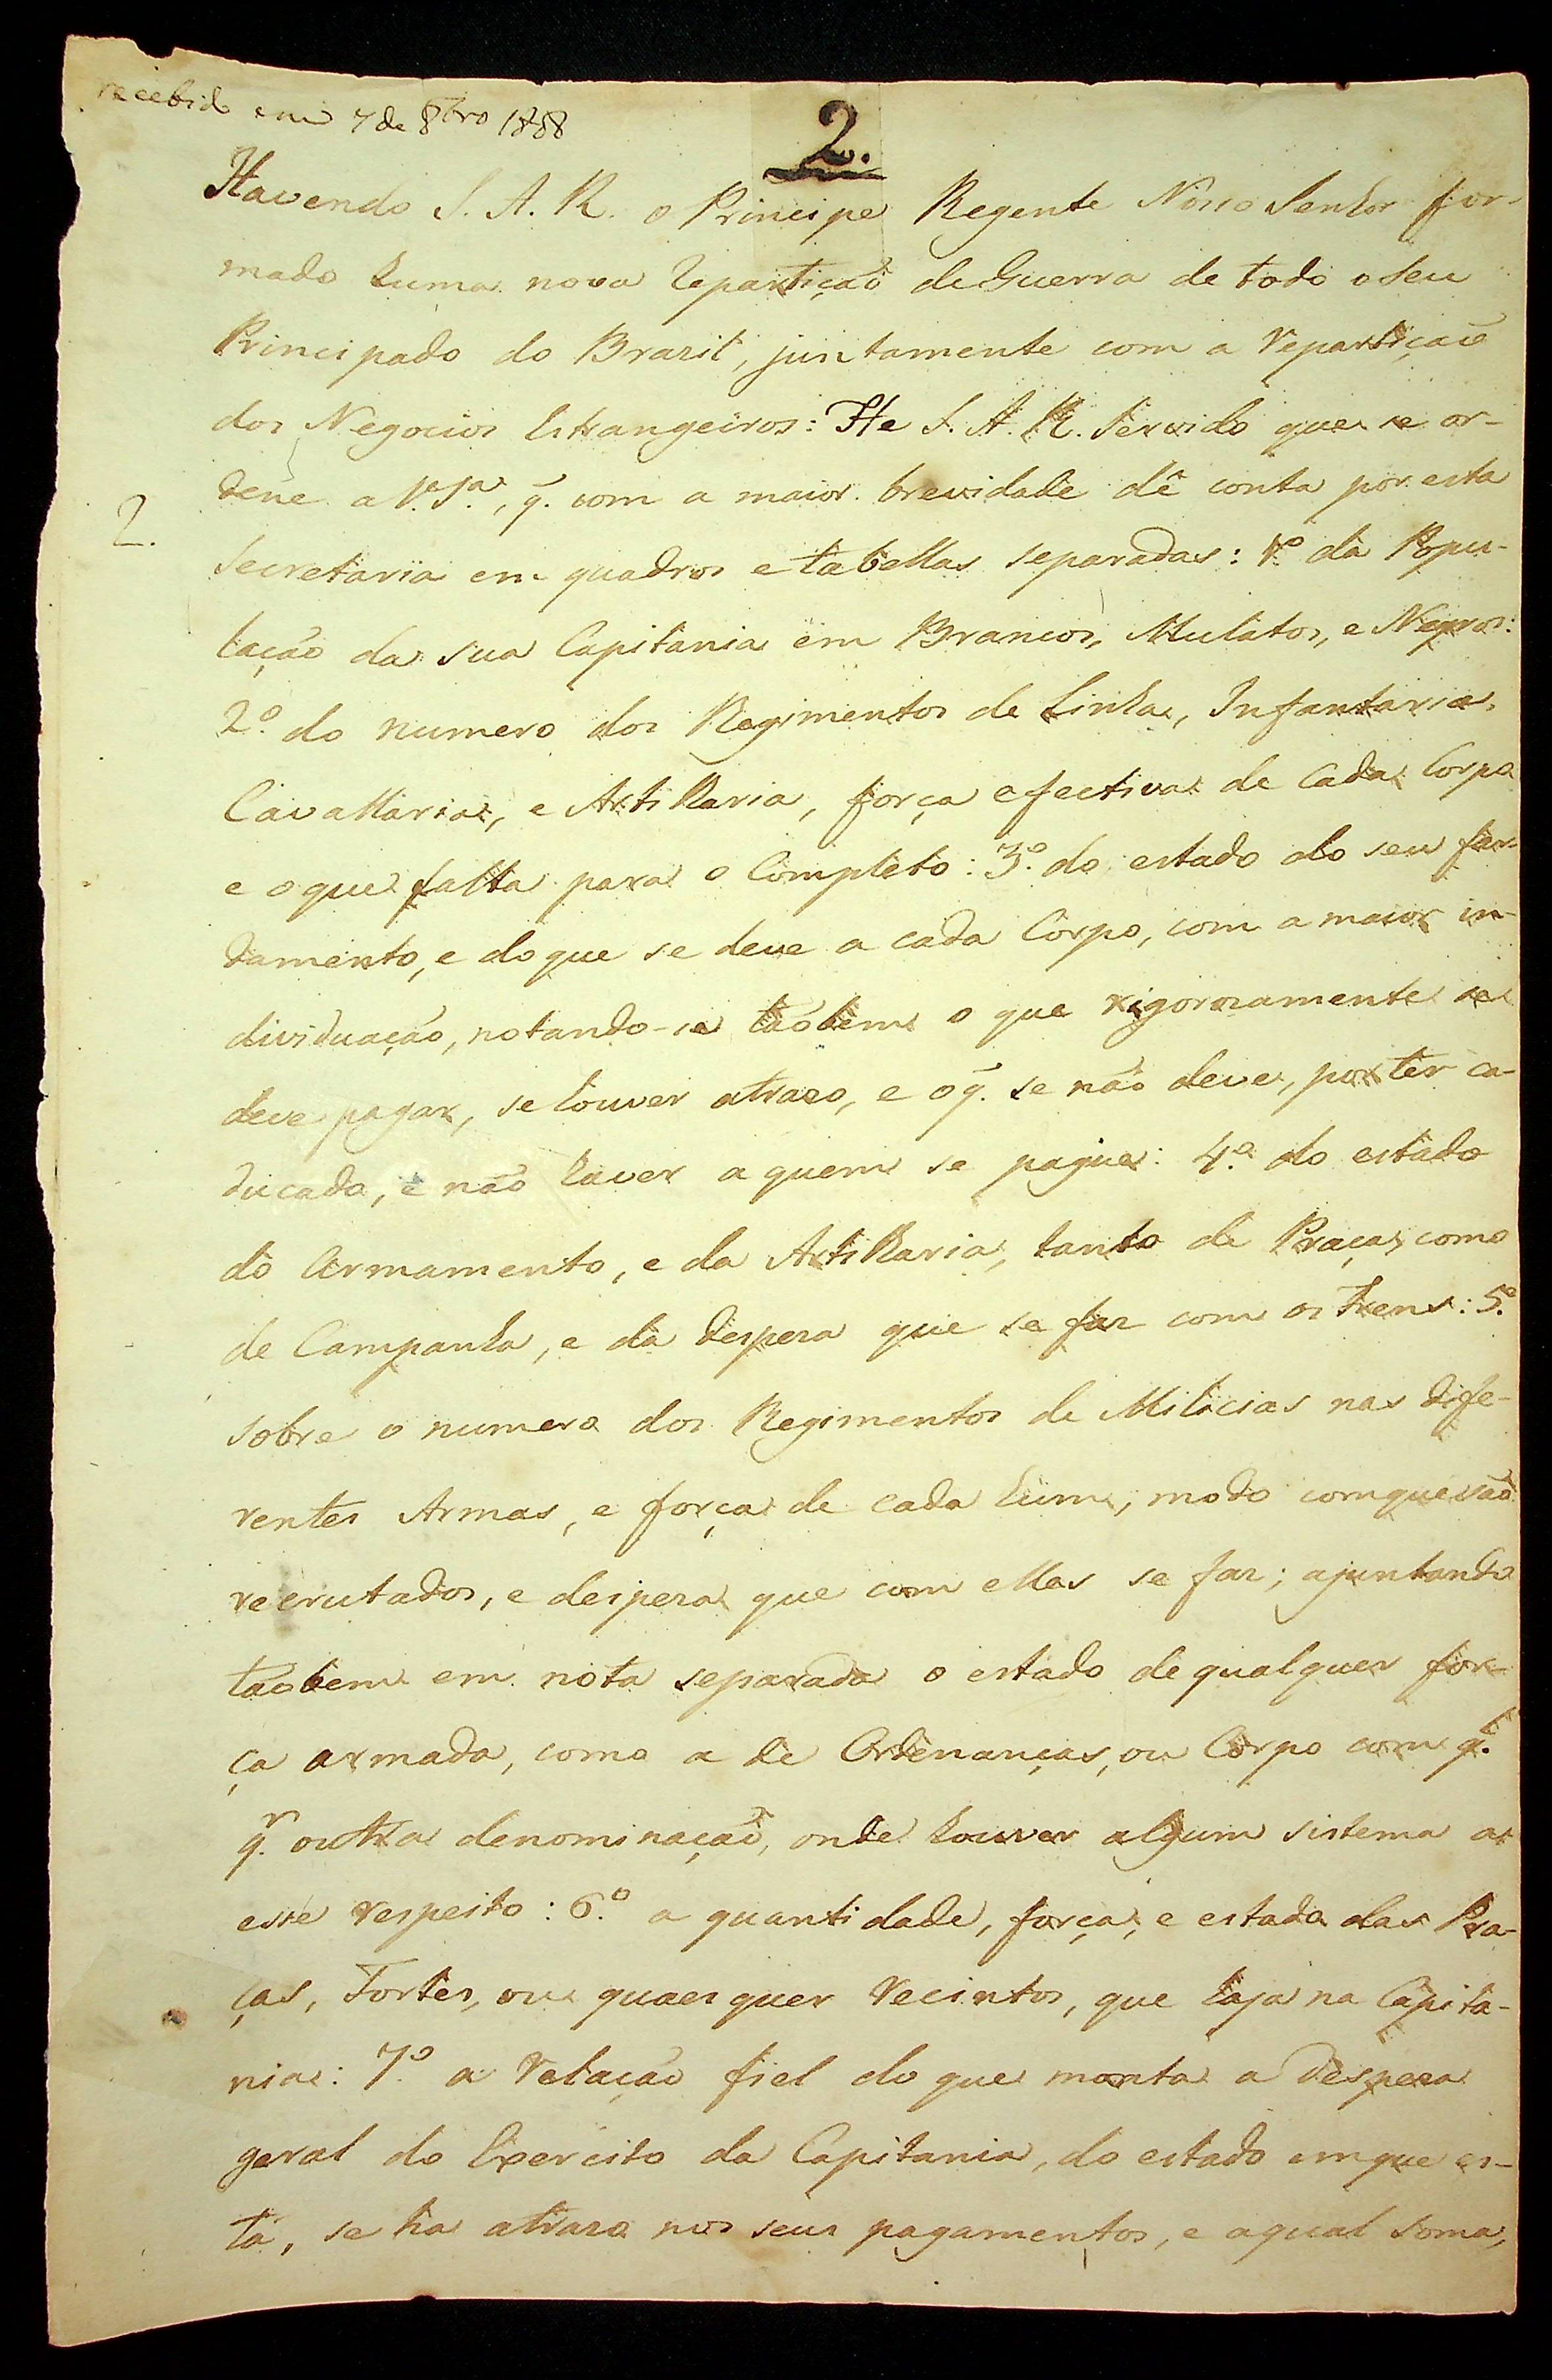 recebido em 7 de 8bro 1808
2.
Havendo S. A. R. o Principe Regente Nosso Senhor for-
mado huma nova repartição de Guerra de todo o seu
Principado do Brazil, juntamente com a repartição
dos Negocios Estrangeiros: He S. A. R. Servido que se or-
dene a V. Sa., q̃. com a maior brevidade dê conta por esta
2.
Secretaria em quadros e tabellas separadas: 1.º da Popu-
lação da sua Capitania em Brancos, Mulatos, e Negros:
2.º do numero dos Regimentos de Linha, Infantaria,
Cavallaria, e Artilharia, força efectiva de cada Corpo
e o que falta para o Completo: 3.º do estado do seu far-
damento, e do que se deve a cada Corpo, com a maior in-
dividuação, notando-se tãobem o que rigorozamente se
deve pagar, se houver atrazo, e o q̃. se não deve, por ter ca-
ducado, e não haver a quem se pague: 4.º do estado
do Armamento, e da Artilharia, tanto de Praça, como
de Campanha, e da despeza que se faz com os trens: 5.º
sobre o numero dos Regimentos de Milicias nas dife-
rentes Armas, e força de cada hum, modo com que são
recrutados, e despeza que com elles se faz; ajuntando
tãobem em nota separada o estado de qualquer for-
ça armada, como a de Ordenanças, ou Corpo com q.l
q.r outra denominação, onde houver algum sistema a
esse respeito: 6.º a quantidade, força, e estado das Pra-
ças, Fortes, ou quaesquer recintos, que haja na Capita-
nia: 7.º a relação fiel do que monta a despeza
geral do Exercito da Capitania, do estado em que es-
tá, se ha atrazo nos seus pagamentos, e a qual soma,